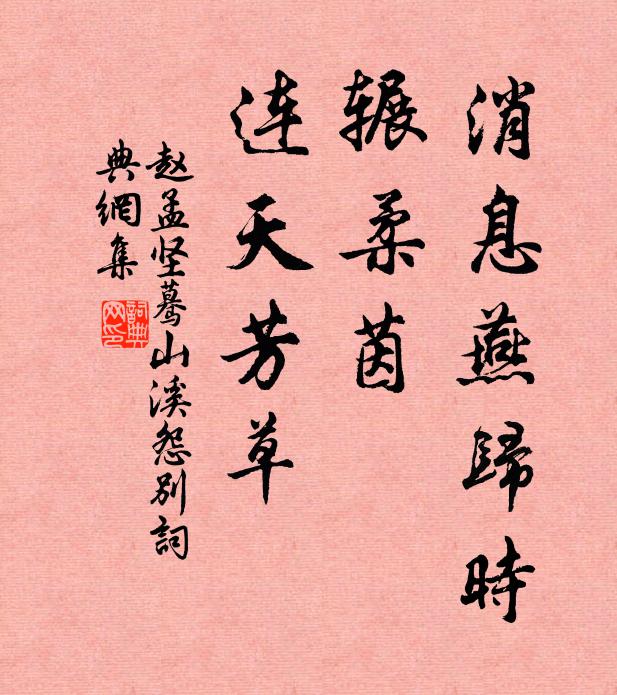 消息燕歸時
辗柔茵
连天芳草
赵孟坚蓦山溪怨别詞
典網集
詞典网印